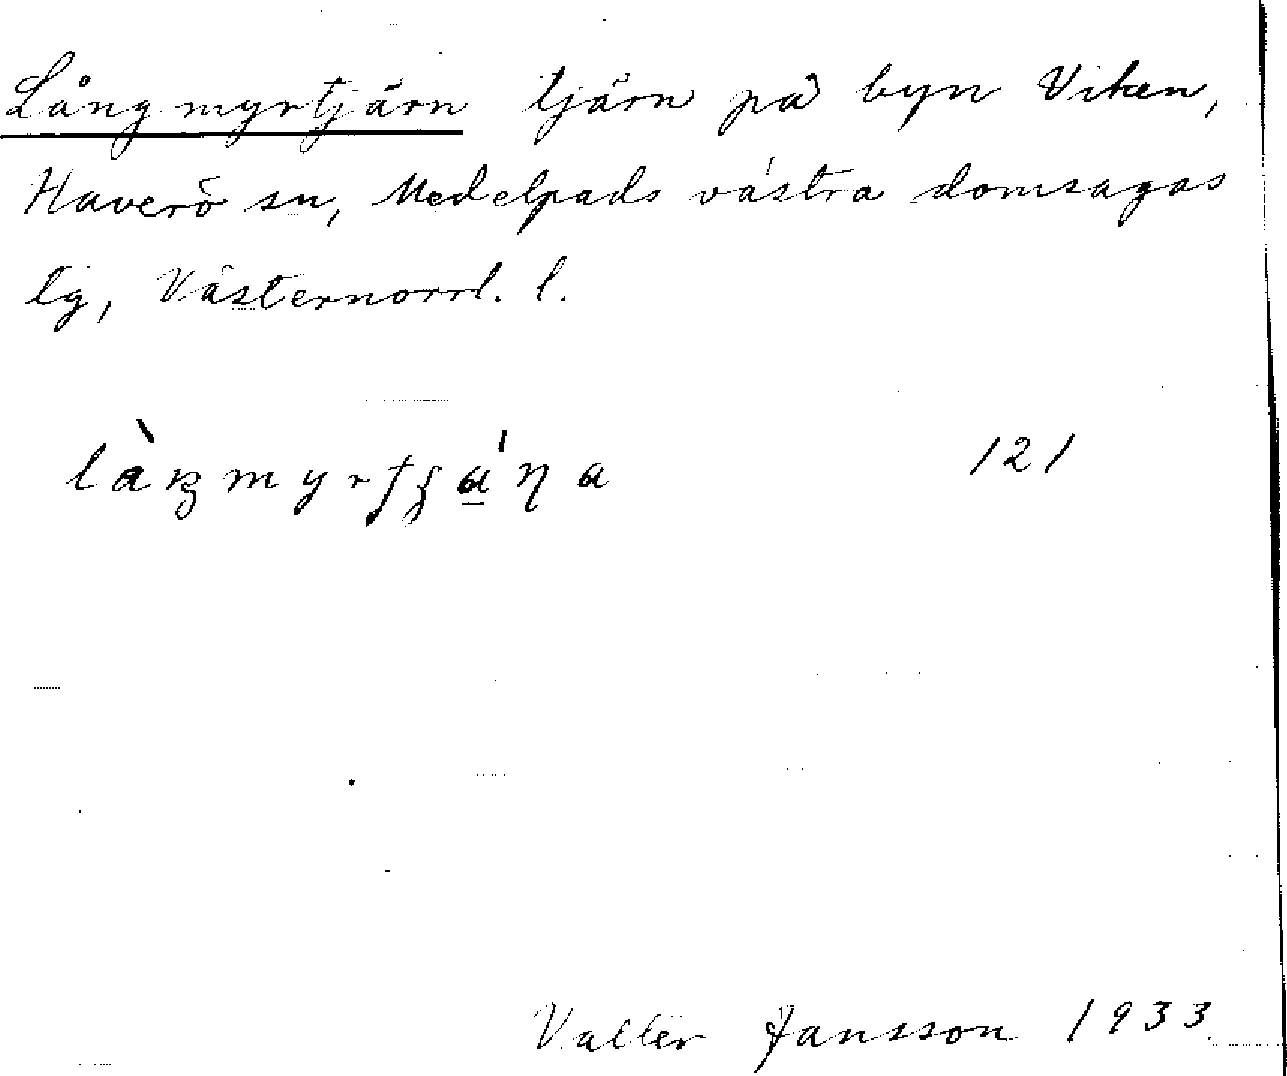 Långmyrtjärn tjärn på byn Viken,
Haverö sn, Medelpads västra domsagas
tg, Västernorrl. l.
121
Valter Jansson 1933.